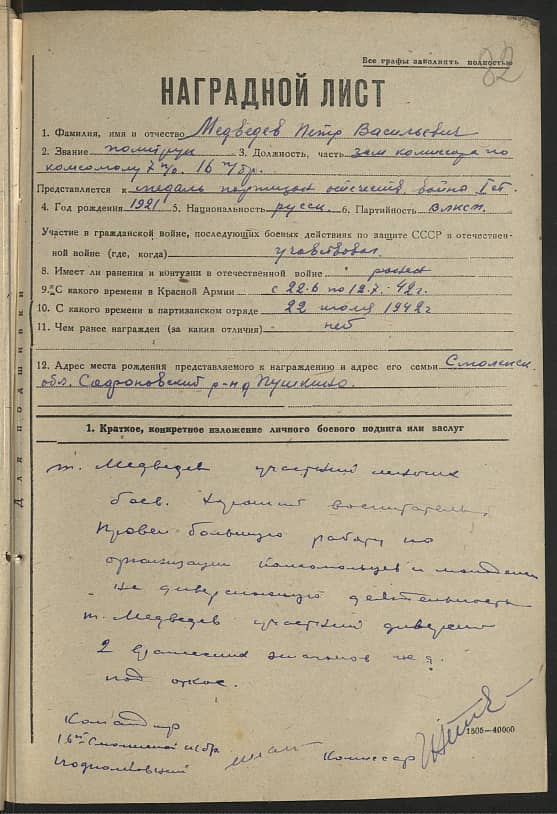 Все графы заполнять полностью
82
НАГРАДНОЙ ЛИСТ
1. Фамилия, имя и отчество Медведев Петр Васильевич
2. Звание политрук 3. Должность, часть зам комиссара по
комсомолу 7 п/о. 16 п/бр.
Представляется к медаль партизан отечеств. войны I ст.
4. Год рождения 1921 5. Национальность русск. 6. Партийность влксм.
Участие в гражданской войне, последующих боевых действиях по защите СССР в отечествен-
ной войне (где, когда) участвовал.
8. Имеет ли ранения и контузии в отечественной войне ранен
9. С какого времени в Красной Армии с 22.6 по 12.7.42г.
10. С какого времени в партизанском отряде 22 июля 1942г
11. Чем ранее награжден (за какия отличия) нет
12. Адрес места рождения представляемого к награждению и адрес его семьи Смоленск.
обл. Сафроновский р-н д Пушкино.
Для подшивки
1. Краткое, конкретное изложение личного боевого подвига или заслуг
т. Медведев участник многих
боев. Хороший воспитатель.
Провел большую работу по
организации комсомольцев и молодежи
на диверсионную деятельность
т. Медведев участник диверсий
2 вражеских эшелонов ж.д.
под откос.
Командир
16й Смоленской п/бр
Комиссар
1505—40000